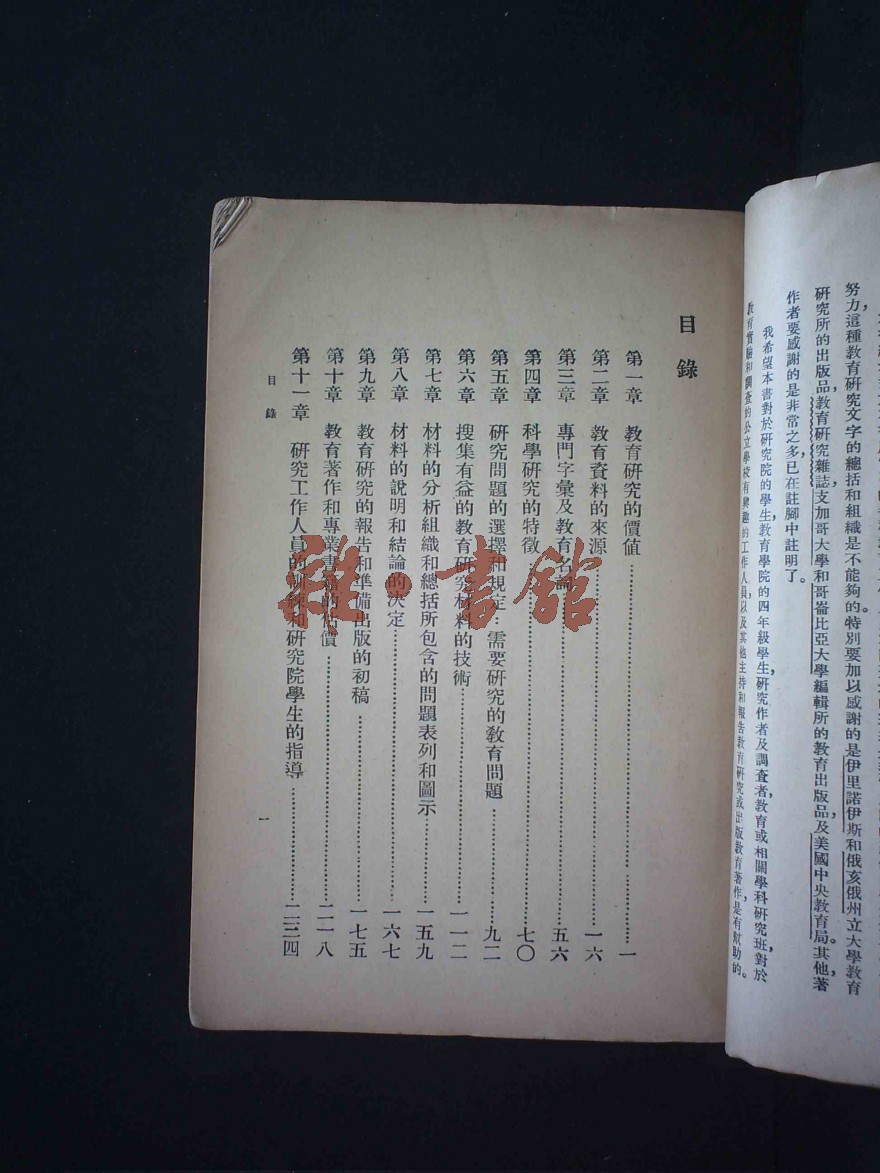 努力,這種教育研究文字的總括和組織是不能夠的。特別要加以感謝的是伊里諾伊斯和俄亥俄州立大學教育
研究所的出版品,教育研究雜誌,支加哥大學和哥崙比亞大學編輯所的教育出版品,及美國中央教育局。其他著
作者要感謝的是非常之多,已在註脚中註明了。
我希望本書對於研究院的學生,教育學院的四年級學生,研究作者及調查者,教育或相關學科研究班,對於
教育實驗和調查的公立學校有興趣的工作人員,以及其他主持和報告教育研究或出版教育著作,是有幫助的。
目錄
第一章 教育研究的價值……一
第二章 教育資料的來源……一六
第三章 專門字彙及教育名……五六
第四章 科學研究的特徵……七〇
第五章 研究問題的選擇和規定:需要研究的教育問題……九二
第六章 搜集有益的教育研究材料的技術……一一二
第七章 材料的分析組織和總括所包含的問題表列和圖示……一五九
第八章 材料的說明和結論的決定……一六七
第九章 教育研究的報告和準備出版的初稿……一七五
第十章 教育著作和專業書籍的估價……二一八
第十一章 研究工作人員的訓練和研究院學生的指導……二三四
目錄
一
雜·書館